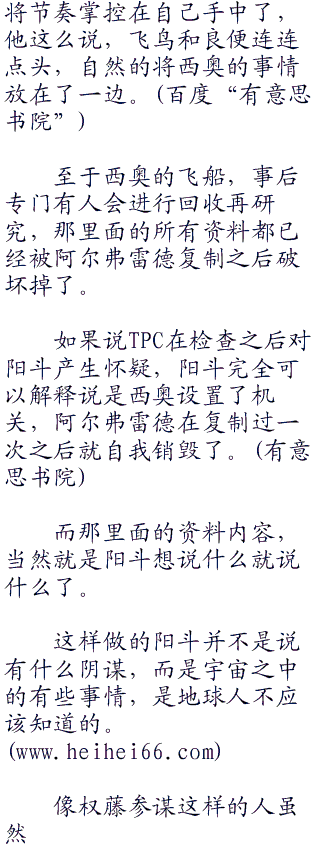 将节奏掌控在自己手中了，
他这么说，飞鸟和良便连连
点头，自然的将西奥的事情
放在了一边。(百度“有意思
书院”)
至于西奥的飞船，事后
专门有人会进行回收再研
究，那里面的所有资料都已
经被阿尔弗雷德复制之后破
坏掉了。
如果说TPC在检查之后对
阳斗产生怀疑，阳斗完全可
以解释说是西奥设置了机
关，阿尔弗雷德在复制过一
次之后就自我销毁了。(有意
思书院)
而那里面的资料内容，
当然就是阳斗想说什么就说
什么了。
这样做的阳斗并不是说
有什么阴谋，而是宇宙之中
的有些事情，是地球人不应
该知道的。
(www.heihei66.com)
像权藤参谋这样的人虽
然